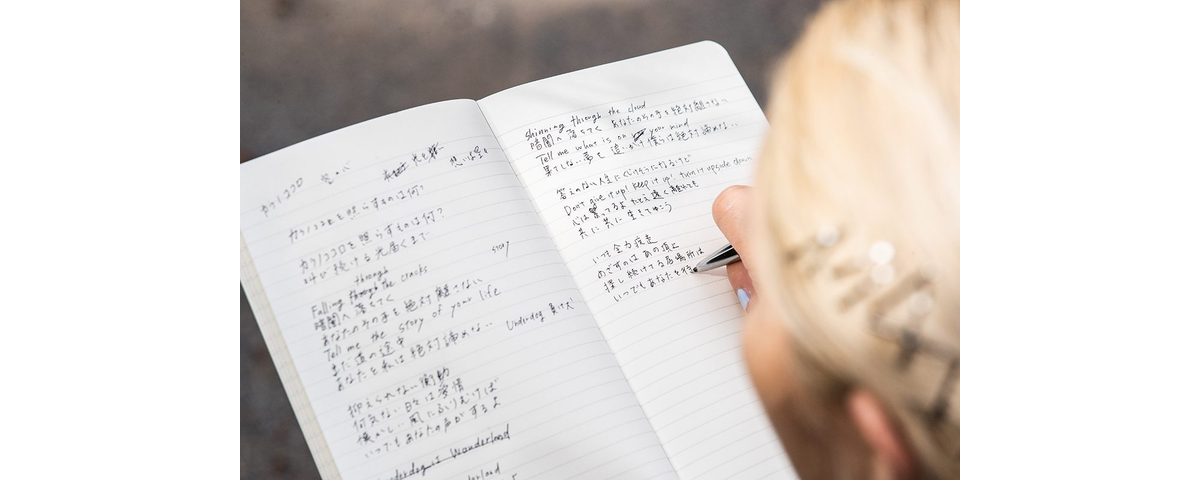 カラバコロ
カラバコロを照らすものは何?
カラバコロを照らすものは何?
叫び続ける 光届くまで
story
through
Falling through the cracks
暗闇へ落ちてく
あなたのその手を絶対離さない
Tell me the story of your life
まだ道の途中
あなたを私は絶対諦めない…
Underdog 負け犬
抑えられない衝動
何気ない日々は愛情
懐かし… 風にふりむけば
いつでもあなたの声がするよ
Underdog is Wonderland
Shinning through the cloud
暗闇へ落ちてく あなたのその手を絶対離さない
Tell me what is on your mind
果てしない夢を追いかけ 僕らは絶対諦めない…
答えのない人生にくじけそうになるけど
Don't give it up! keep it up! turn it upside down
心は繋ってるよ たとえ遠く離れても
共に共に生きてゆこう
いつも全力疾走
めざすのはあの頂上
探し続けてる居場所は
いつでもあなたを